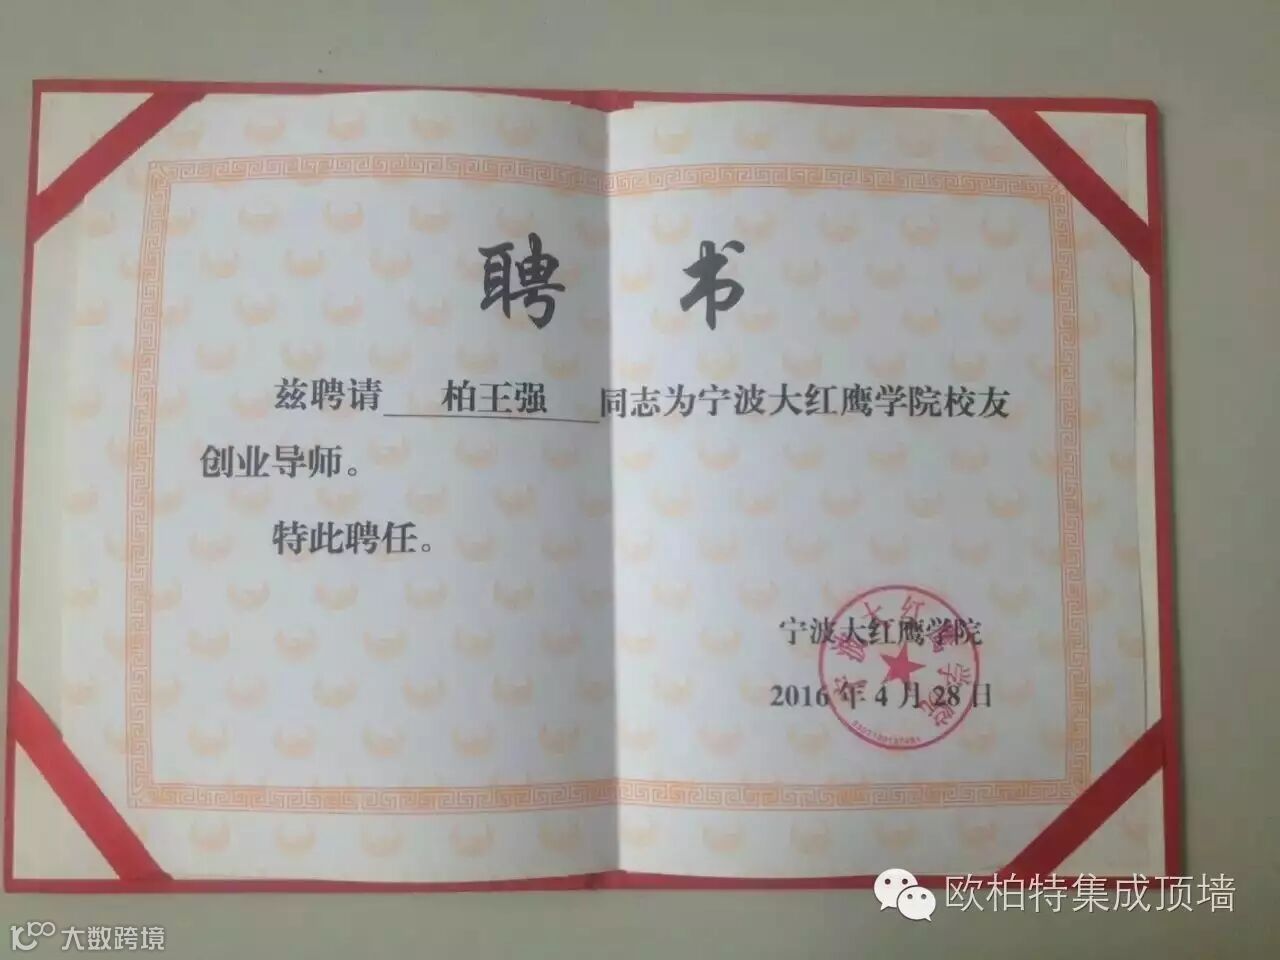 聘 书
兹聘请 柏王强 同志为宁波大红鹰学院校友
创业导师。
特此聘任。
宁波大红鹰学院
2016 年 4 月 28 日
宁波大红鹰学院
欧柏特集成顶墙
大数跨境